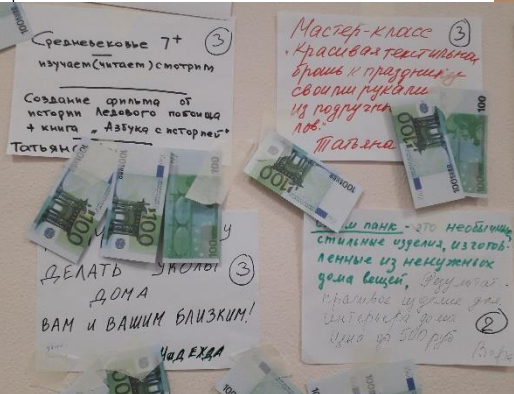 Средневековье 7+
3
изучаем(читаем) смотрим
Создание фильма об
истории Ледового побоища
+ книга "Азбука с историей"
Татьяна
Мастер-класс
3
"Красивая текстильная
брошь к празднику
своими руками
из подручных
Татьяна
ДЕЛАТЬ УКОЛЫ
3
ДОМА
ВАМ И ВАШИМ БЛИЗКИМ!
НАДЕЖДА
панк - это необычные,
стильные изделия, изготов-
ленные из ненужных
дома вещей. Результат -
красивое изделие для
интерьера дома
Цена до 500 руб
2
100
100
100
100
100
100